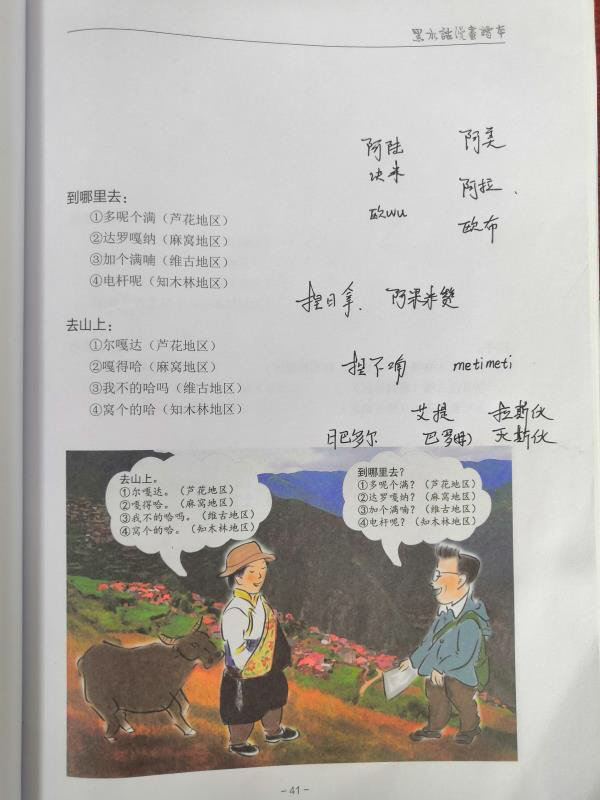 黑水話漫畫讀本
阿陆 阿美
块米
阿拉.
欧wu 欧布
到哪里去：
①多呢个满（芦花地区）
②达罗嘎纳（麻窝地区）
③加个满喃（维古地区）
④电杆呢（知木林地区）
捏日拿. 阿果米赞
去山上：
①尔嘎达（芦花地区）
②嘎得哈（麻窝地区）
③我不的哈吗（维古地区）
④窝个的哈（知木林地区）
捏不 metimeti
艾提 拉斯伙
日巴多尔 巴罗姆 天斯伙
去山上。
①尔嘎达。（芦花地区）
②嘎得哈。（麻窝地区）
③我不的哈吗。（维古地区）
④窝个的哈。（知木林地区）
到哪里去？
①多呢个满？（芦花地区）
②达罗嘎纳？（麻窝地区）
③加个满喃？（维古地区）
④电杆呢？（知木林地区）
- 41 -